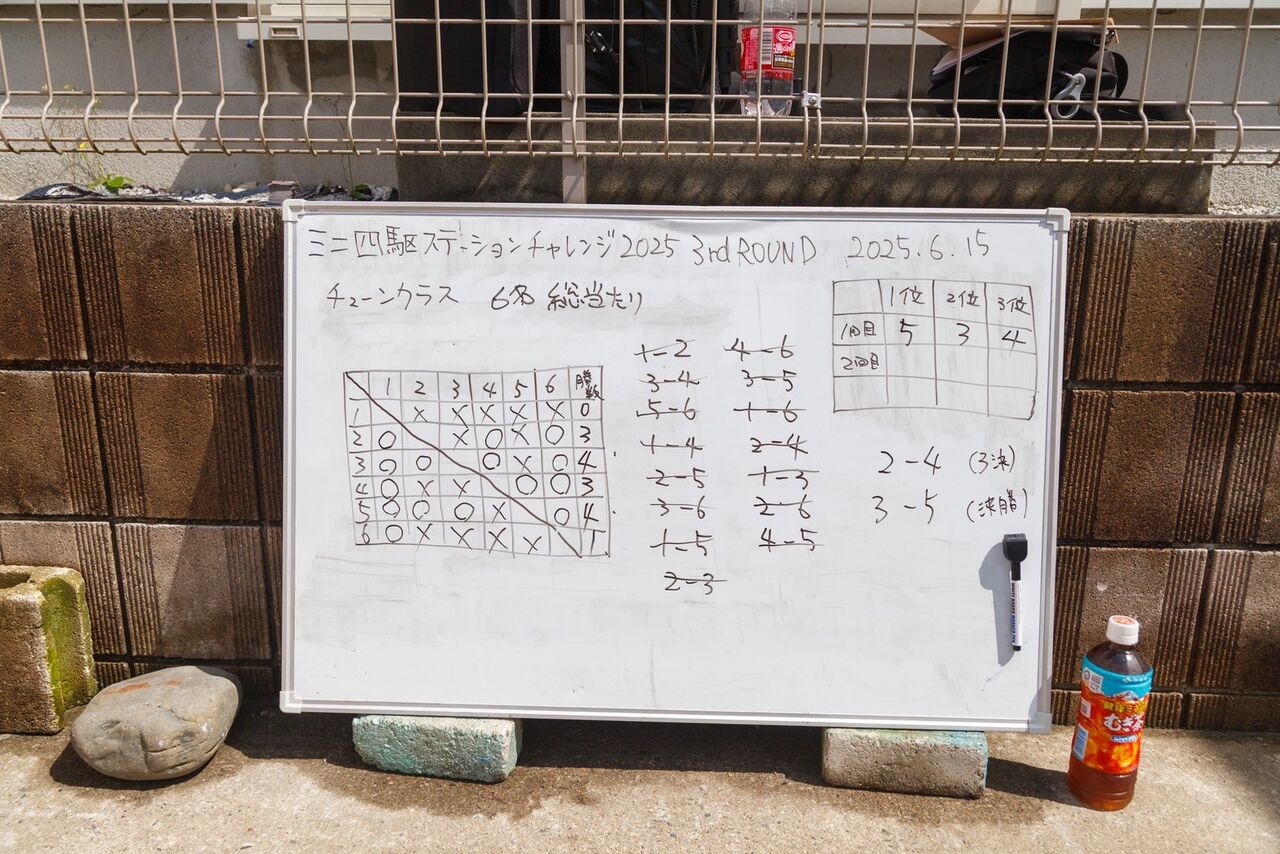 ミニ四駆ステーションチャレンジ2025 3rd ROUND 2025.6.15
チューンクラス 6名 総当たり
1位 2位 3位
1回目 5 3 4
2回目
1 2 3 4 5 6 勝数
1 X X X X X 0
2 O X O X O 3
3 O O O X O 4
4 O X X O O 3
5 O O O X O 4
6 O X X X X 1
1-2 4-6
3-4 3-5
5-6 1-6
1-4 2-4
2-5 1-3
3-6 2-6
1-5 4-5
2-3
2-4 (3決)
3-5 (決勝)
むぎ茶